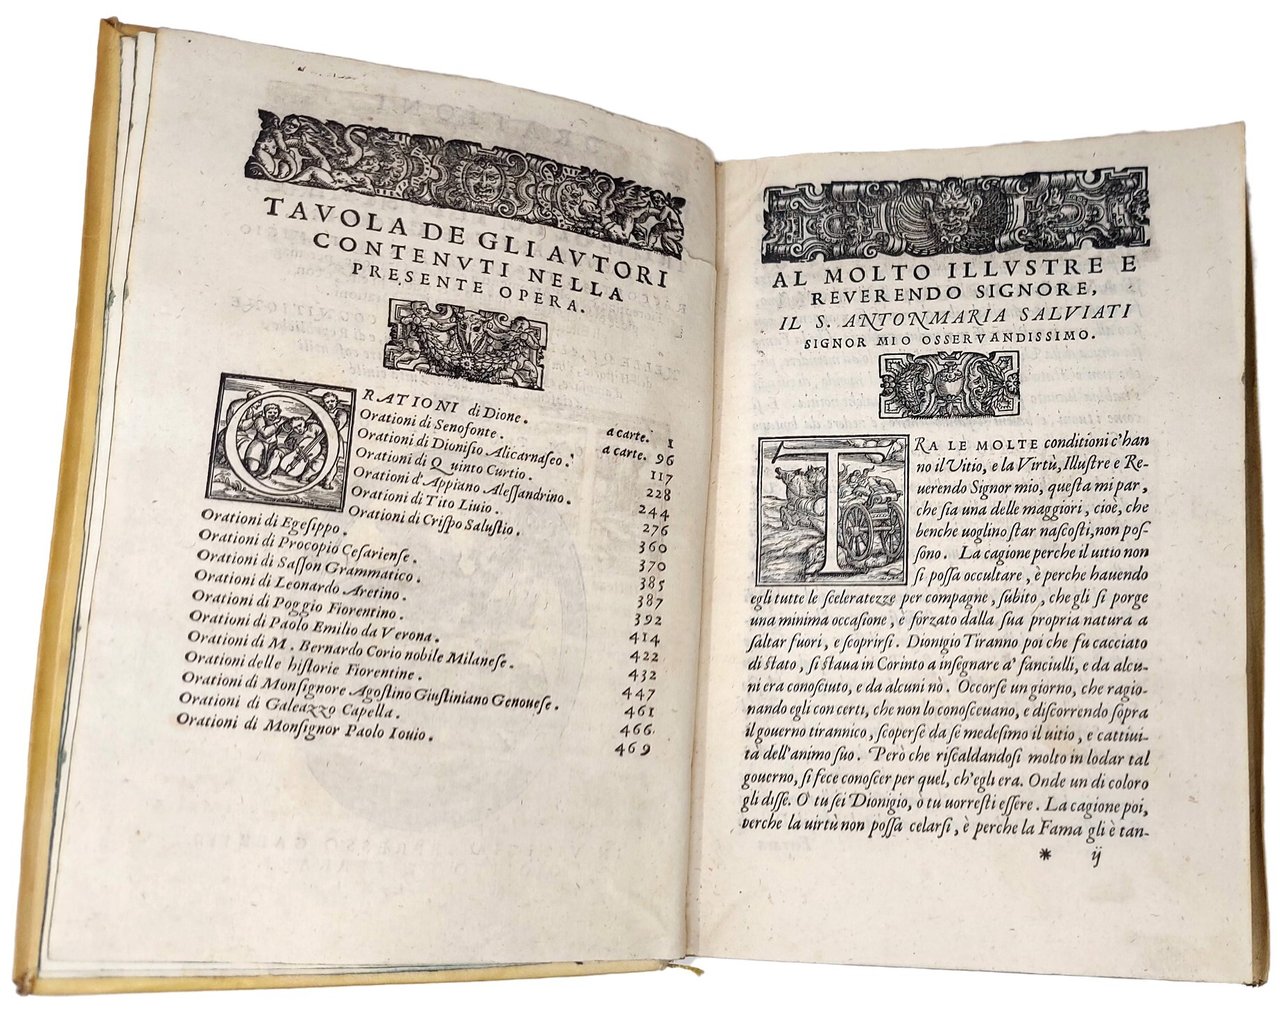 TAVOLA DE GLI AVTORI
CONTENVTI NELLA
PRESENTE OPERA.
ORATIONI di Dione. a carte. 1
Orationi di Senofonte. a carte. 96
Orationi di Dionisio Alicarnasco. 117
Orationi di Quinto Curtio. 228
Orationi d'Appiano Alessandrino. 244
Orationi di Tito Liuio. 276
Orationi di Crispo Salustio. 360
Orationi di Egesippo. 370
Orationi di Procopio Cesariense. 385
Orationi di Sasson Grammatico. 387
Orationi di Leonardo Aretino. 392
Orationi di Poggio Fiorentino. 414
Orationi di Paolo Emilio da Verona. 422
Orationi di M. Bernardo Corio nobile Milanese. 432
Orationi delle historie Fiorentine. 447
Orationi di Monsignore Agostino Giustiniano Genouese. 461
Orationi di Galeazzo Capella. 466
Orationi di Monsignor Paolo Iouio. 469
AL MOLTO ILLVSTRE E
REVERENDO SIGNORE,
IL S. ANTONMARIA SALVIATI
SIGNOR MIO OSSERVANDISSIMO.
TRA LE MOLTE conditioni c'han
no il Vitio, e la Virtù, Illustre e Re-
uerendo Signor mio, questa mi par,
che sia una delle maggiori, cioè, che
benche uoglino star nascosti, non pos-
sono. La cagione perche il uitio non
si possa occultare, è perche hauendo
egli tutte le sceleratezze per compagne, subito, che gli si porge
una minima occasione, è forzato dalla sua propria natura a
saltar fuori, e scoprirsi. Dionigio Tiranno poi che fu cacciato
di stato, si staua in Corinto a insegnare a' fanciulli, e da alcu-
ni era conosciuto, e da alcuni nò. Occorse un giorno, che ragio-
nando egli con certi, che non lo conosceuano, e discorrendo sopra
il gouerno tirannico, scoperse da se medesimo il uitio, e cattiui-
tà dell'animo suo. Però che riscaldandosi molto in lodar tal
gouerno, si fece conoscer per quel, ch'egli era. Onde un di coloro
gli disse. O' tu sei Dionigio, ò tu uorresti essere. La cagione poi,
perche la uirtù non possa celarsi, è perche la Fama gli è tan-
* ij